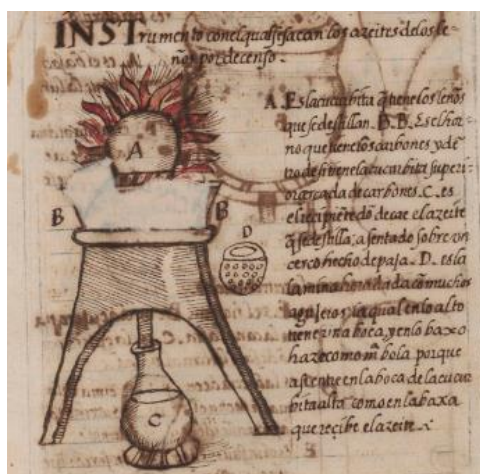 INSTrumento con el qual se sacan los azeites de los le-
ños por decenso.
A. Es la cucurbita q̃ tiene los leños
que se destillan. B. B. Es el hor
no que tiene los carbones y dẽ
tro de si tiene la cucurbita superi-
or cercada de carbones. C. es
el recipiẽte dõ de cae el azeite
q̃ se destilla, asentado sobre un
cerco hecho de paja. D. es la
lamina horadada cõ muchos
agujeros, la qual en lo alto
tiene vna boca, y en lo baxo
haze como mª bola porque
asiente en la boca de la cucur
bita alta como en la baxa
que recibe el azeite.
A
B
B
D
C